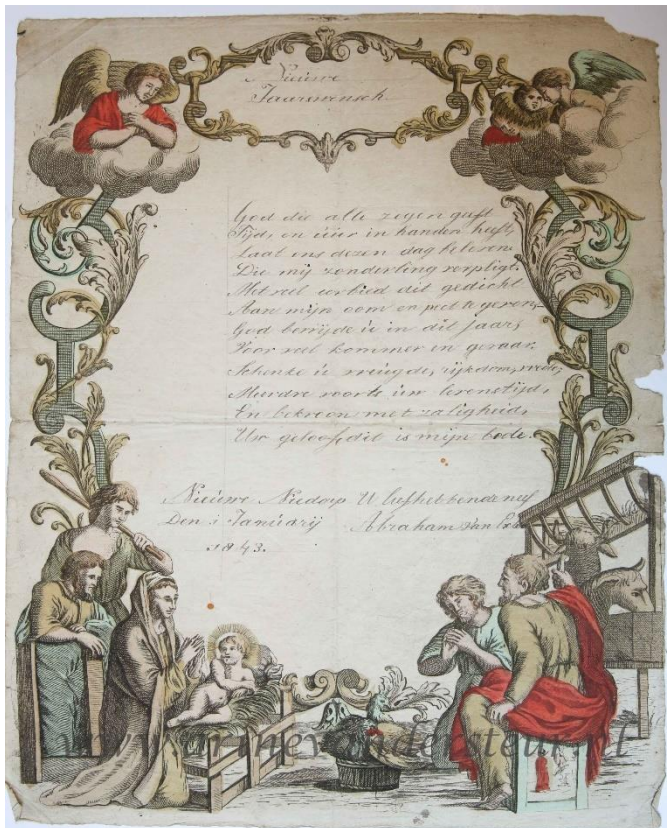 Nieuwe
Jaarwensch
God die alle zegen geeft
Tijd, en uur in handen heeft,
Laat ons dezen dag beleven
Die mij zonderling verpligt.
Met veel eerbied dit gedicht
Aan mijn oom en peet te geven,
God bevrijde u in dit jaar,
Voor veel kommer en gevaar.
Schenke u vreugde, rijkdom, vrede,
Meerdre voorts uw levenstijd,
En bekroon met zaligheid,
Uw geloof, dit is mijn bede.
Nieuwe Niedorp U liefhebbende neef
Den 1 Januarij Abraham van
1843.